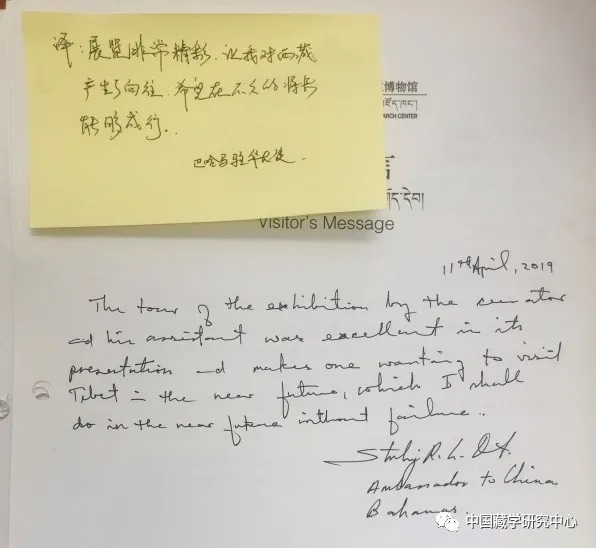 译：展览非常精彩，让我对西藏
产生了向往，希望在不久的将来
能够成行。
巴哈马驻华大使
博物馆
ARCH CENTER
言
Visitor's Message
11th April, 2019
The tour of the exhibition by the
and his assistant was excellent in its
presentation and makes one wanting to visit
Tibet in the near future, which I shall
do in the near future without failure..
Ambassador to China
Bahamas.
中国藏学研究中心